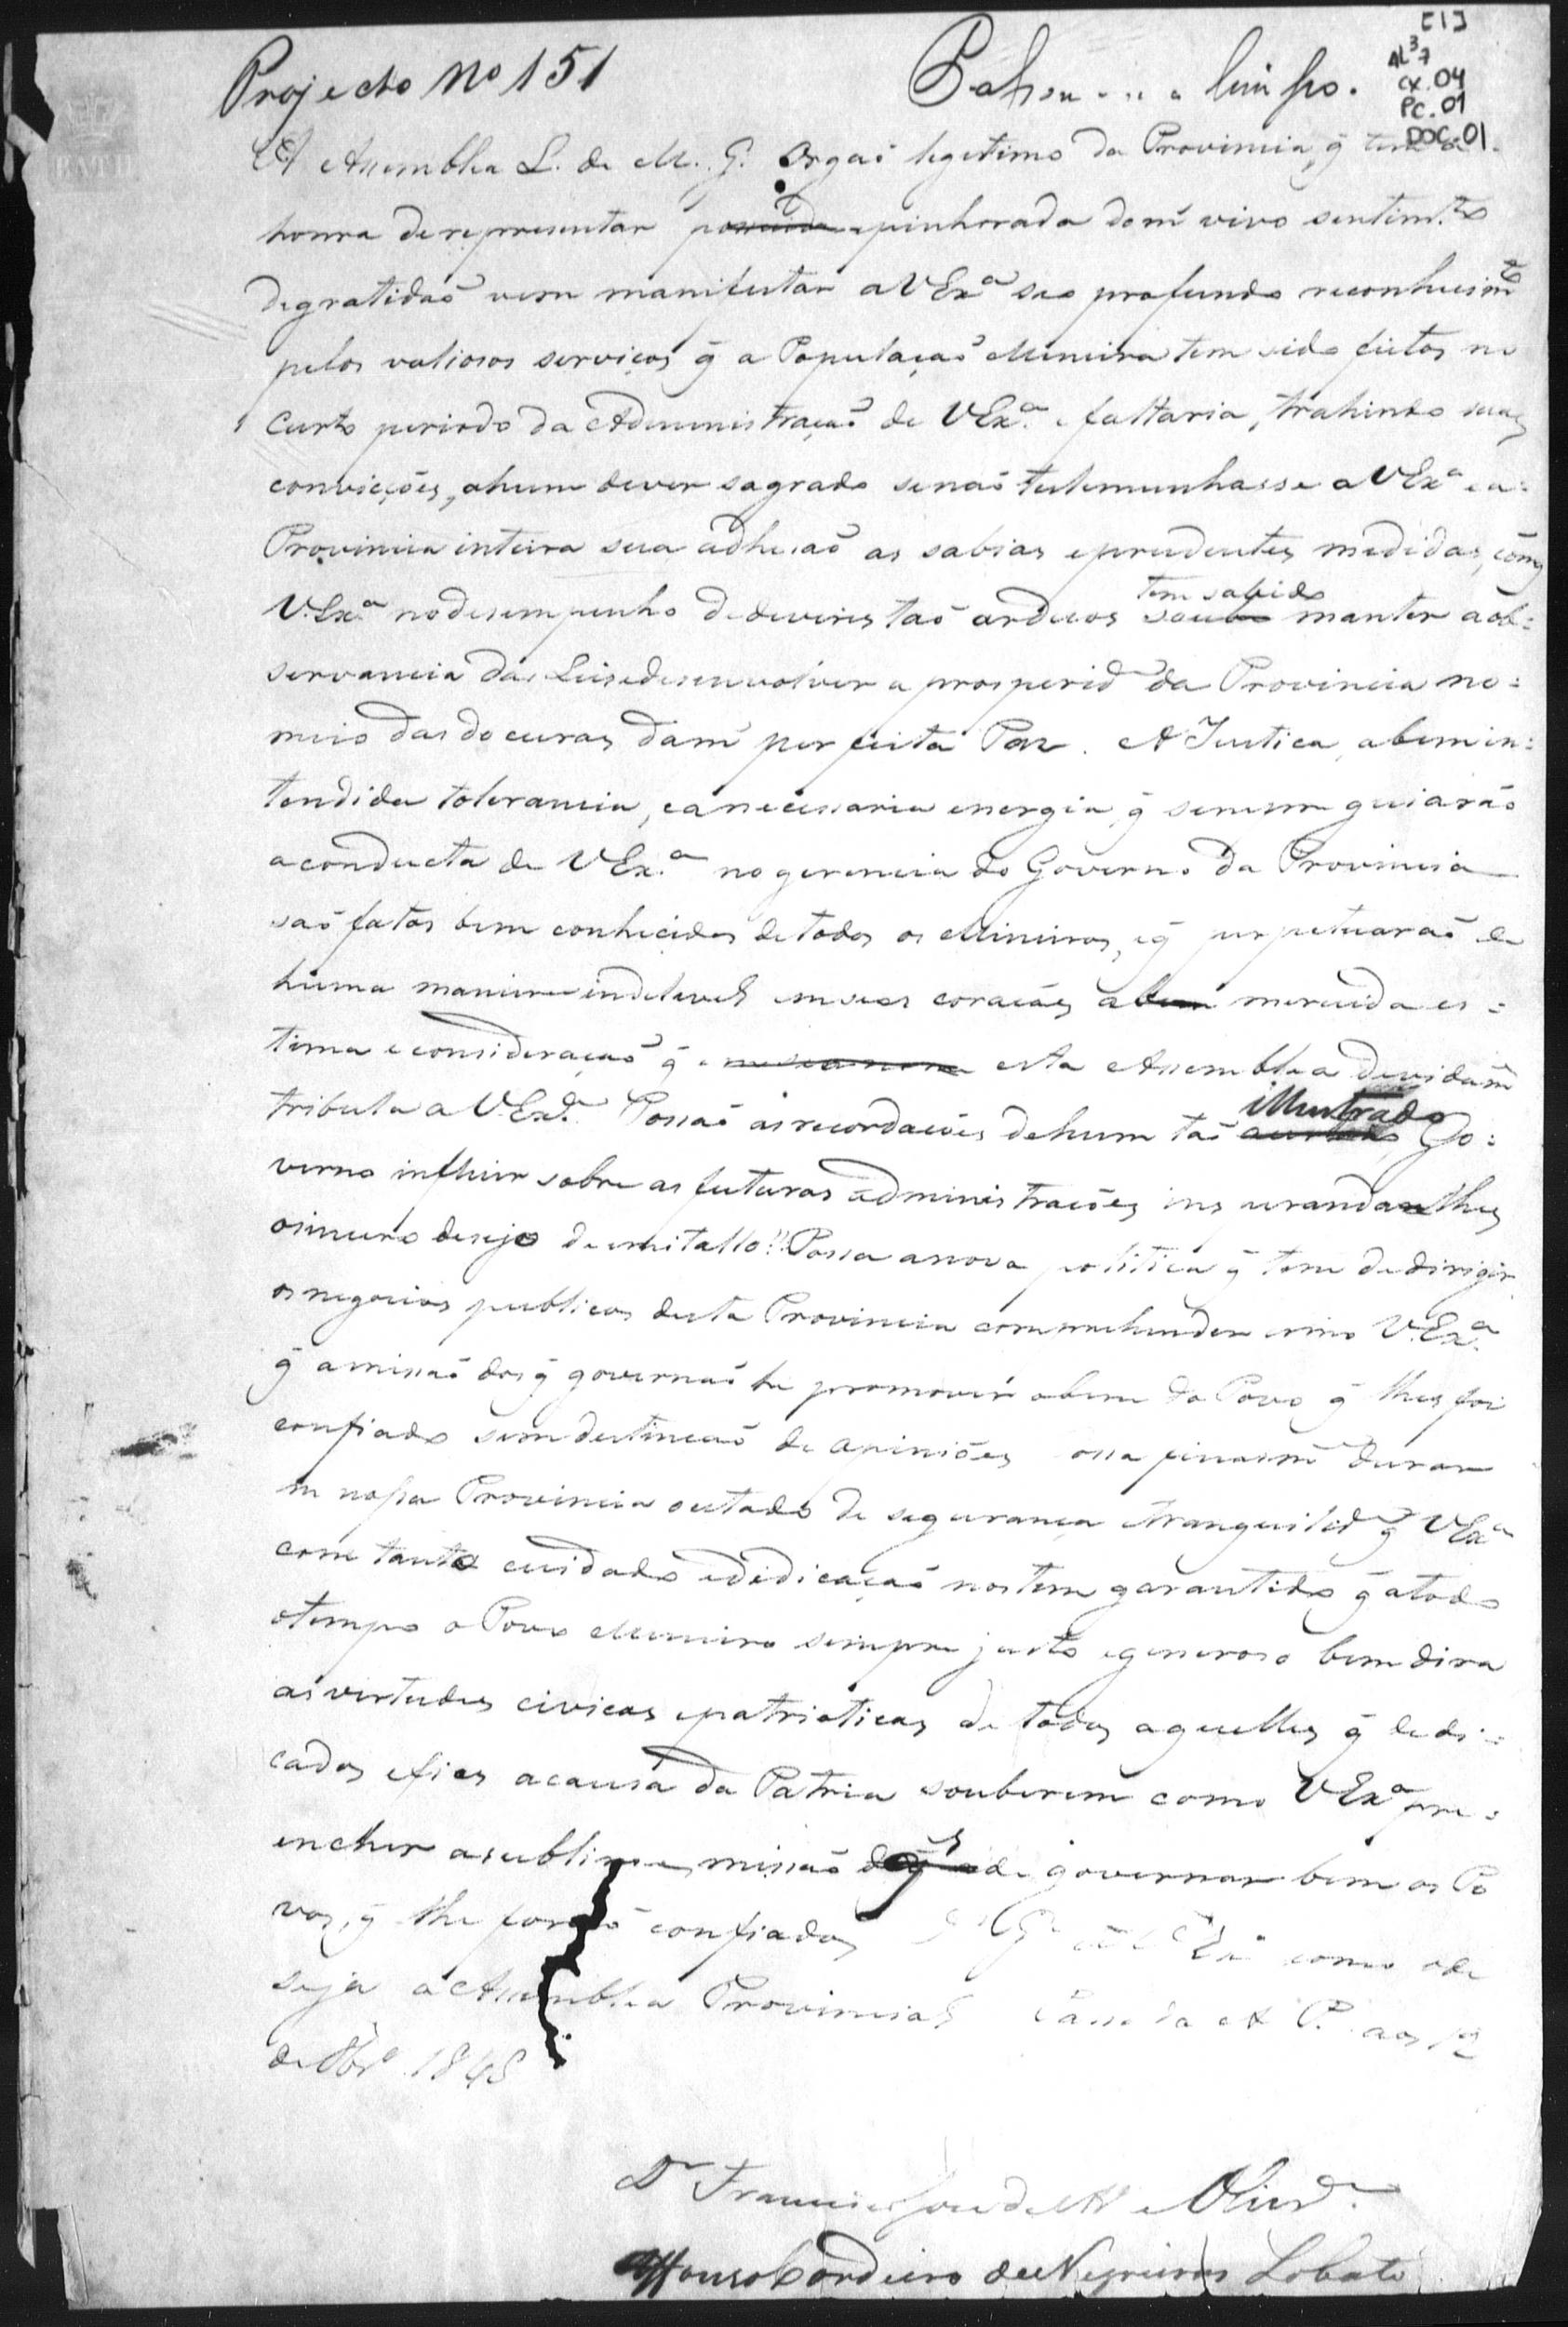 [1]
AL 3 7
CX. 04
PC. 01
DOC. 01
Projecto Nº 151
limpo.
A Assemblea L. de M. G. Orgaõ legitimo da Provincia, q̃ tem a
honra de representar penhorada dom̃ vivo sentim.to
de gratidaõ vem manifestar a V Ex.a seo profundo reconhecim.to
pelos valiosos serviços q̃ a Populaçaõ Mineira tem sido feitos no
curto periodo da Administraçaõ de V Ex.a e faltaria, trahindo suas
convicções, a hum dever sagrado se naõ testemunhasse a V Ex.a e a
Provincia inteira sua adhesaõ as sabias e prudentes medidas, com q̃
V. Ex.a no desempenho de deveres taõ arduos tem sabido manter a ob=
servancia das Leis e desenvolver a prosperid.e da Provincia no=
meio das doçuras dam̃ perfeita Paz. A Justiça, a bem in=
tendida tolerancia, e a necessaria energia q̃ sempre guiaraõ
a conducta de V Ex.a no gerencia do Governo da Provincia
saõ fatos bem conhecidos de todos os Mineiros, e q̃ perpetuaraõ de
huma maneira indelevel em seos corações a merecida es=
tima e consideraçaõ q̃ esta Assemblea devidam.te
tributa a V. Ex.a Possaõ as recordações de hum taõ illustrado Go=
verno influir sobre as futuras administrações inspirando lhes
o sincero desejo de imitallo!! Possa a nova politica q̃ tem de dirigir
os negocios publicos desta Provincia comprehender como V. Ex.a
q̃ a missaõ dos q̃ governaõ he promover o bem do Povo q̃ lhes foi
confiado sem destincçaõ de opiniões ossa finalm.te durar
em nossa Provincia o estado de segurança e tranquilid.e q̃ V Ex.a
com tanto cuidado e dedicaçaõ nos tem garantido q̃ a todo
o tempo o Povo Mineiro sempre justo e generoso bem dira
as virtudes civicas e patrioticas de todos aquelles q̃ dedi=
cados e fieis a causa da Patria souberem como V Ex.a pre=
encher a sublime missaõ de governar bem os Po
vos, q̃ lhe foraõ confiados G.e a V Ex.a como o de
seja a Assemblea Provincial Passo da A P. aos 12
de 8br.o 1848
D.r Francisco José de Oliv.a
Affonso Cordeiro de Negreiros Lobato